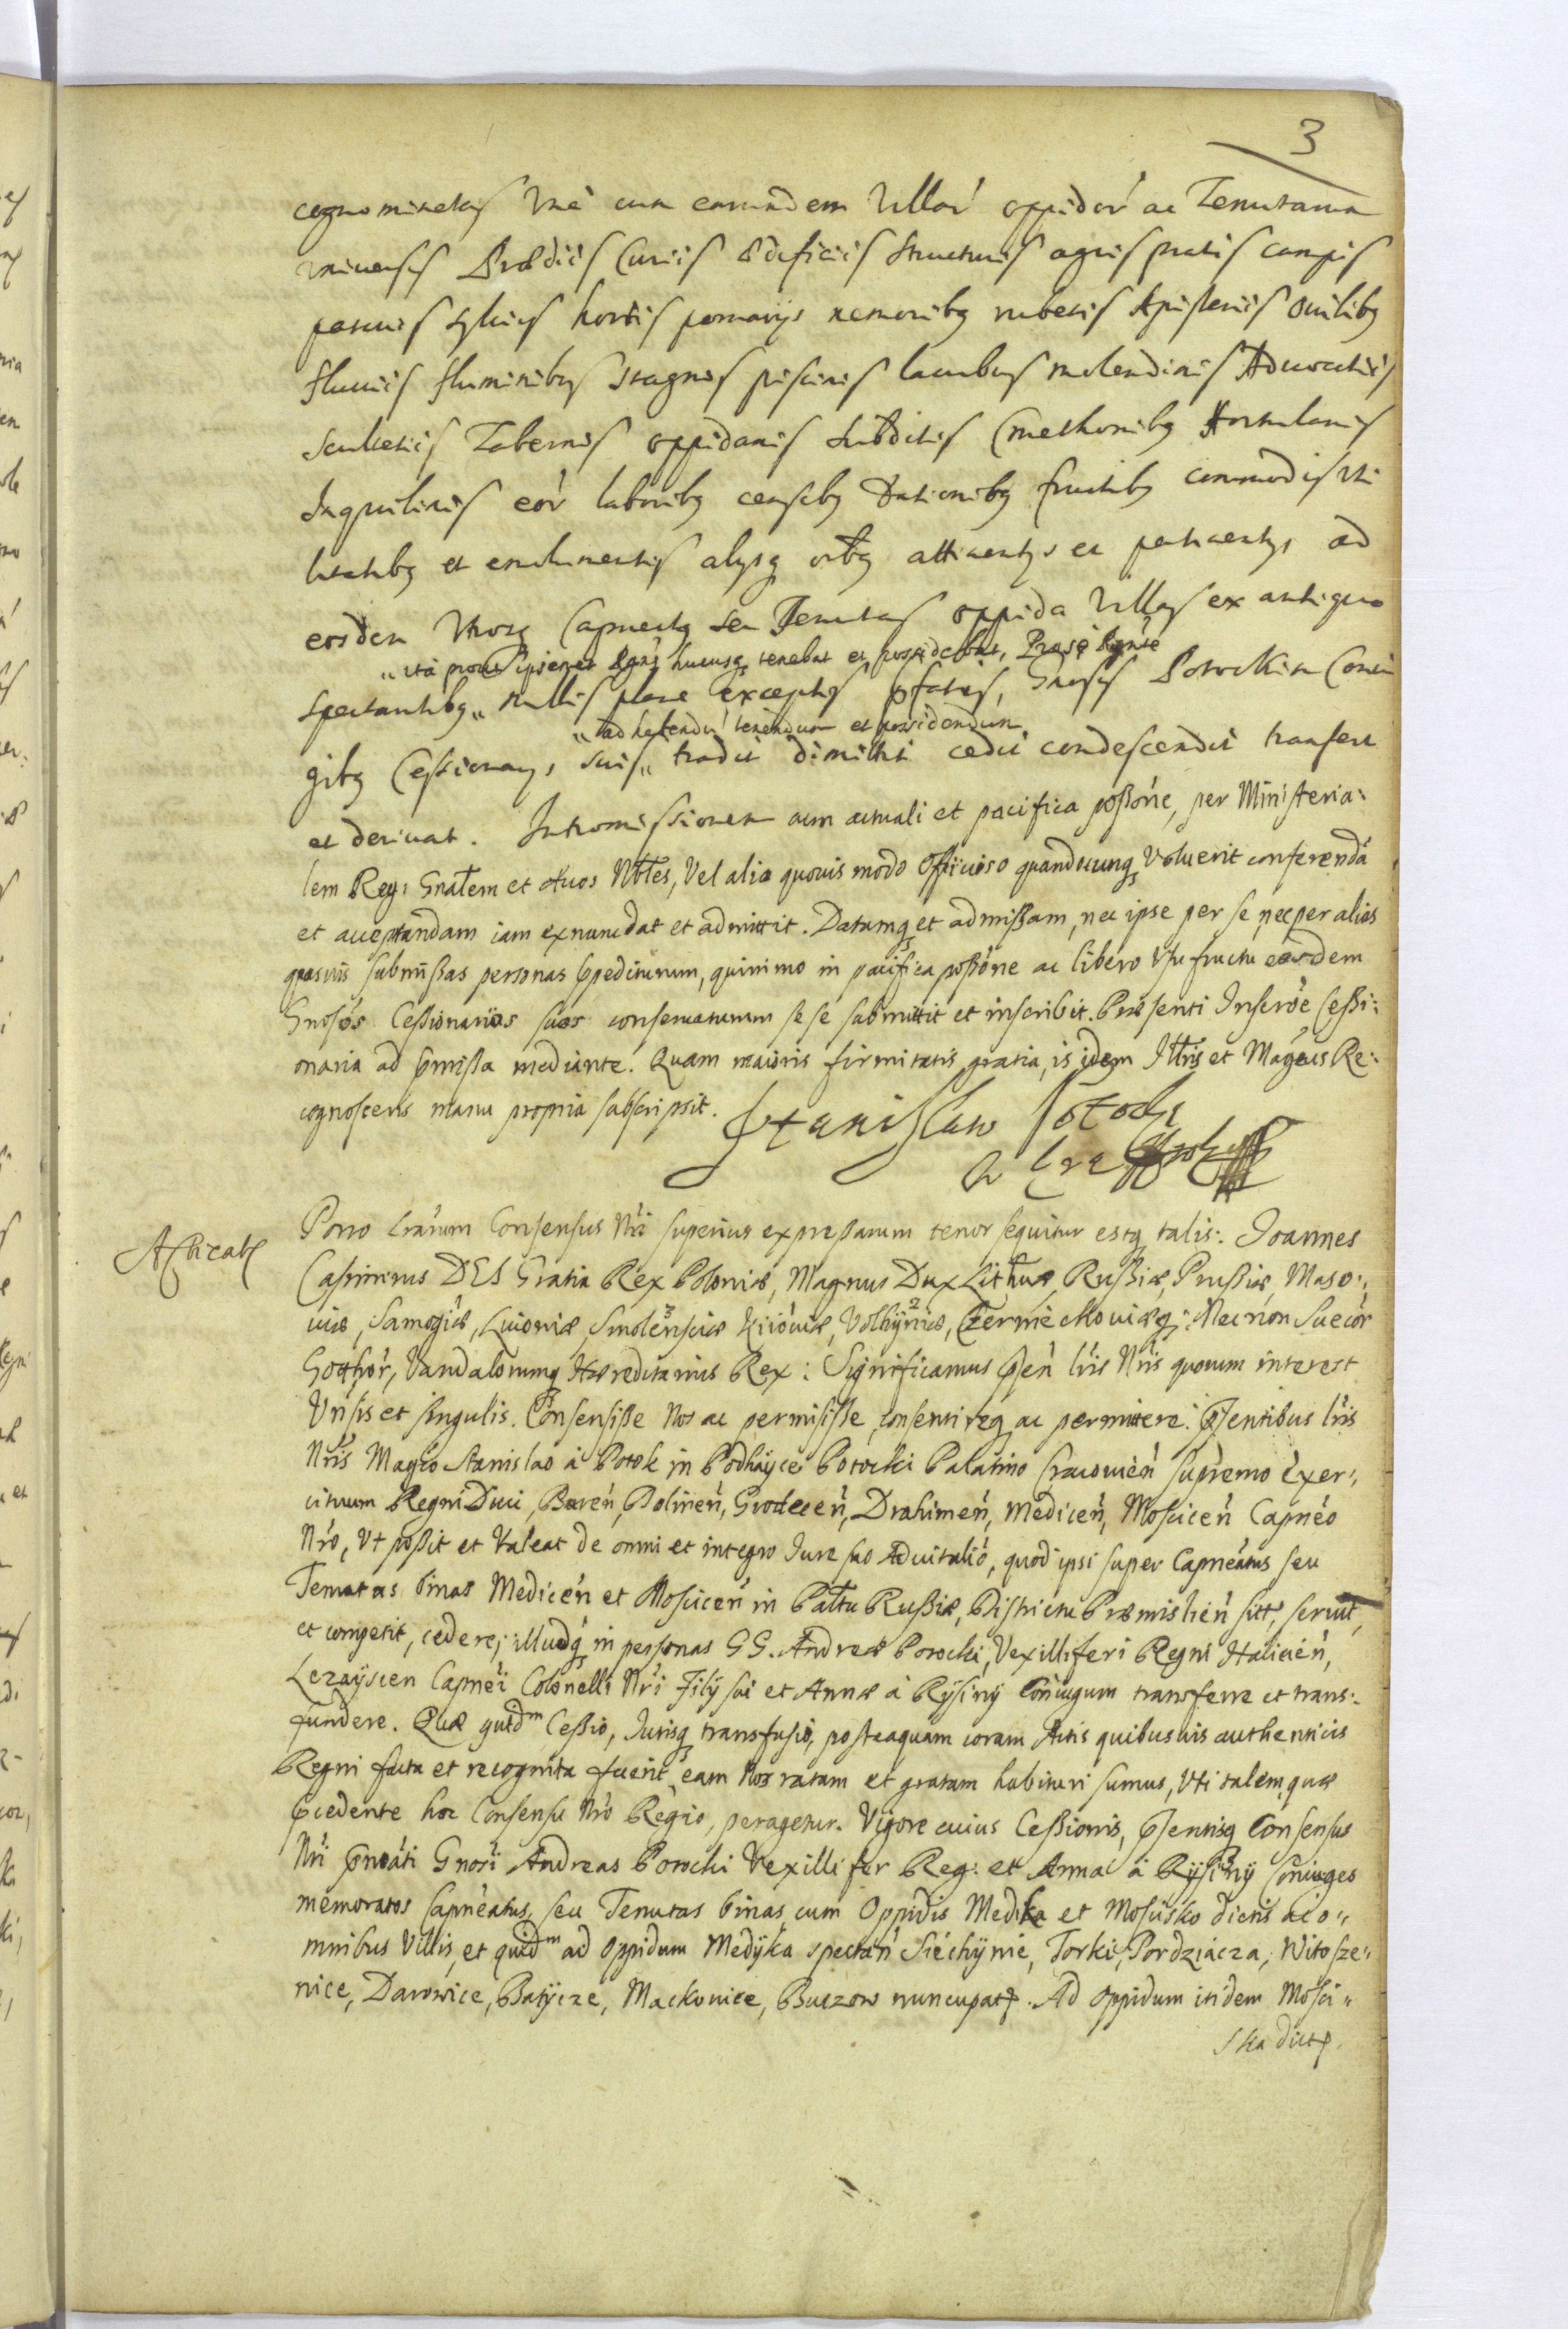 3
cognominatis Vna cum earundem Villar oppidor ac Tenutarum
vniuersis Prædiis Curiis ædificiis structuris agris pratis campis
pascuis syluis hortis pomarijs nemoribq rubetis Apisteriis ouilibq
fluuiis fluminibq stagnis piscinis lacubus molendinis Aduocatiis
Scultetiis Tabernis oppidanis subditis Cmethonibq Hortulanis
Inquilinis eor laboribq censibq dationibq fructibq commodis vti
litatibq et emolumentis alysq oibq attinentijs et pertinentijs ad
eosdem Vtrosq Capneatq seu Tenutas oppida Villas ex antiquo
„ ita prout ipsemet hucusq tenebat et possidebat,
spectantibq „ nullis plane exceptis pfatis, Gnosis Potockim Coniu
„ ad habendu tenendum et possidendum
gibq Cessionarijs suis „ tradit dimittit cedit condescendit transfert
et deriuat. Intromissionem cum actuali et pacifica possone, per Ministeria:
lem Regi Gnalem et duos Nobles, Vel alio quouis modo Officioso quandocunq Voluerit conferenda
et acceptandam iam exnunc dat et admittit. Datamq et admissam, nec ipse per se, nec per alias
quasuis submissas personas impediturum, quinimo in pacifica possone ac libero Vsufructu eosdem
Gnosos Cessionarios suos conseruaturum se se submittit et inscribit. Præsenti Inscroe Cessi:
onaria ad pmissa mediante. Quam maioris firmitatis gratia, is idem Illris et Magcus Re:
cognoscens manu propria subscripsit. Stanislaw Potocki
Porro lrarum Consensus Nri superius expressarum tenor sequitur estq talis: Joannes
Casimirus DEI Gratia Rex Poloniæ, Magnus Dux Lithuæ, Russiæ, Prussiæ, Maso:,
uiæ, Samogiæ, Liuoniæ, Smolensciæ Kiiouiæ, Volhyniæ, Czerniechouiæq: Necnon Suecor
Gothor, Vandalorumq Hæreditarius Rex: Significamus psen lris Nris quorum interest
Vnsis et singulis. Consensisse Nos ac permisisse, consentireq ac permittere: psentibus lris
Nris Magco Stanislao à Potok in Podhayce Potocki Palatino Cracouien supremo Exer:,
cituum Regni Duci, Baren, Bolinen, Grodecen, Drahimen, Medicen, Moscicen Capneo
Nro, Vt possit et Valeat de omni et integro Iure suo Aduitalio, quod ipsi super Capneatus seu
Tenutas binas Medicen et Moscicen in Paltu Russiæ, Districtu Præmislien sitt, seruit,
et competit, cedere, illudq in personas GG. Andreæ Potocki, Vexilliferi Regni Halicien,
Lezaÿscien Capnei Colonelli Nri Filÿ sui et Annæ à Rÿsinÿ Coniugum transferre et trans:
fundere. Quæ quidm Cessio, Iurisq transfusio, posteaquam coram Actis quibusuis authenticis
Regni facta et recognita fuerit, eam Nos ratam et gratam habituri sumus, Vti talem, quæ
pcedente hoc Consensu Nro Regio, peragetur. Vigore cuius Cessionis, psentisq Consensus
Nri pneati Gnori Andreas Potocki Vexillifer Reg: et Anna à Rÿsinÿ Coniuges
memoratos Capneatus, seu Tenutas binas, cum Oppidis Medika et Moscisko dictis ac o:,
mnibus Villis, et quidm ad Oppidum Medÿka spectan Siechÿnie, Torki, Pordziacza, Witosze:,
nice, Darowice, Batÿcze, Mackowice, Buczow nuncupat. Ad Oppidum itidem Mosci„
ska dict